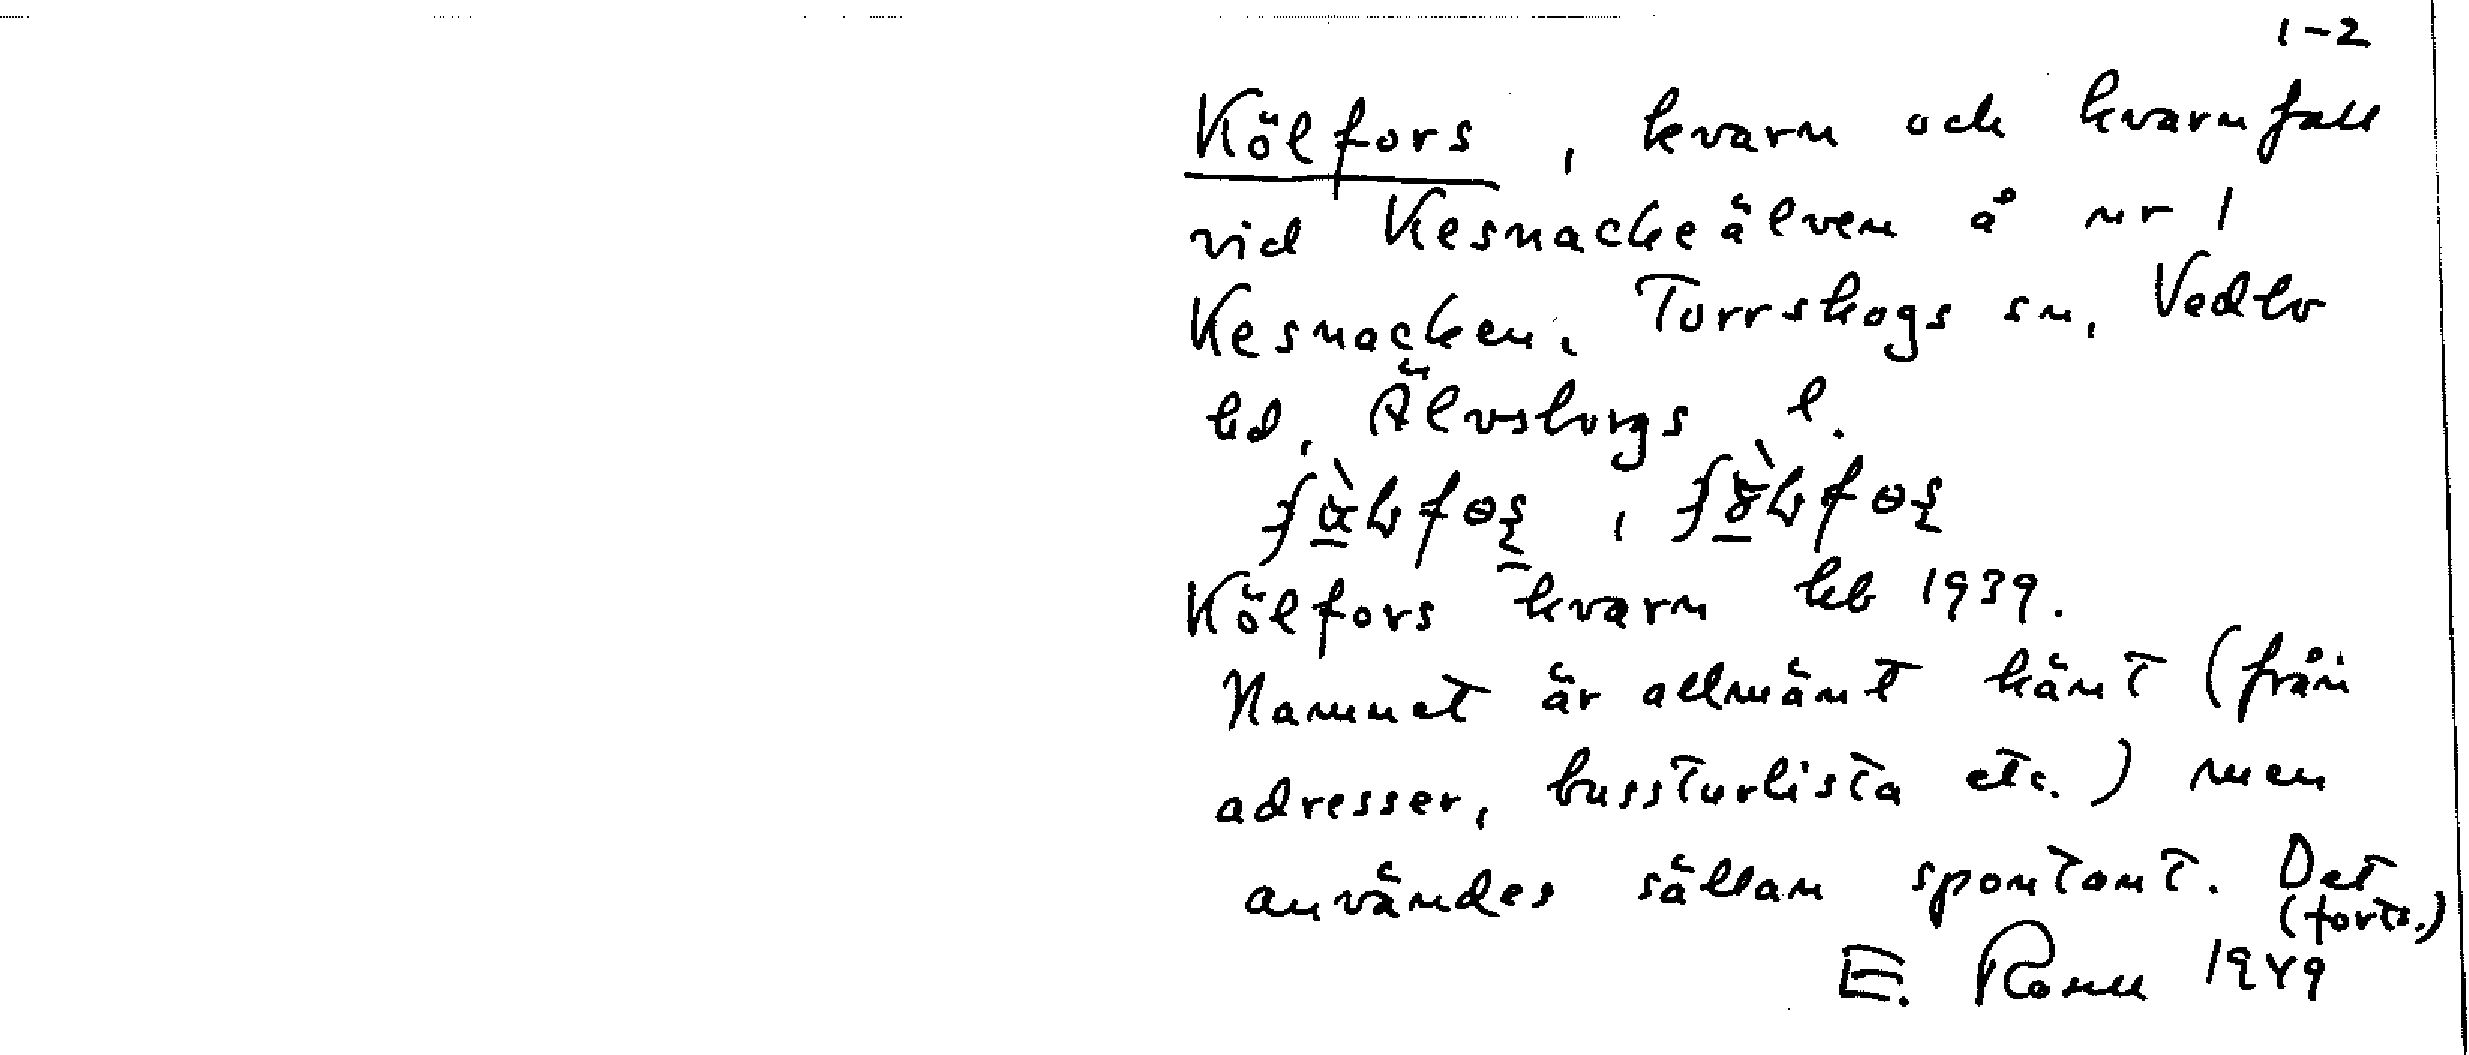 1-2
Kölfors, kvarn och kvarnfall
vid Kesnackeälven å nr 1
Kesnacken, Torrskogs sn, Vedbo
hd, Älvsborgs l.
Kölfors kvarn kb 1939.
Namnet är allmänt känt (från
adresser, bussturlista etc.) men
användes sällan spontant. Det
(forts.)
E. Rosell 1949